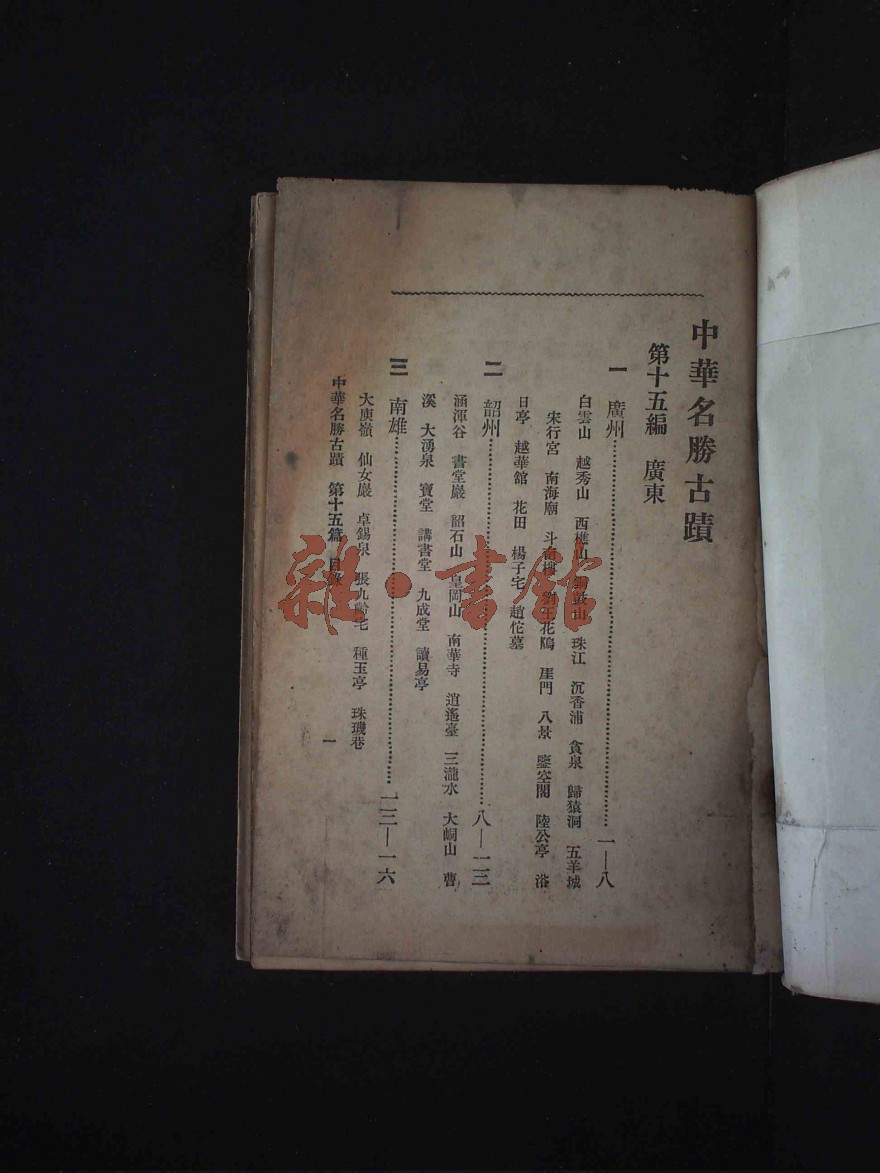 中華名勝古蹟
第十五編　廣東
一　廣州…………一—八
白雲山　越秀山　西樵山　銅鼓山　珠江　沉香浦　貪泉　歸猿洞　五羊城
宋行宮　南海廟　斗南樓　劉王花塢　崖門　八景　鑒空閣　陸公亭　浴
日亭　越華館　花田　楊子宅　趙佗墓
二　韶州…………八—一三
涵渾谷　書堂巖　韶石山　皇岡山　南華寺　逍遙臺　三瀧水　大峒山　曹
溪　大湧泉　寶堂　講書堂　九成堂　讀易亭
三　南雄…………一三—一六
大庾嶺　仙女巖　卓錫泉　張九齡宅　種玉亭　珠璣巷
中華名勝古蹟　第十五篇　目錄　一
雜·書館